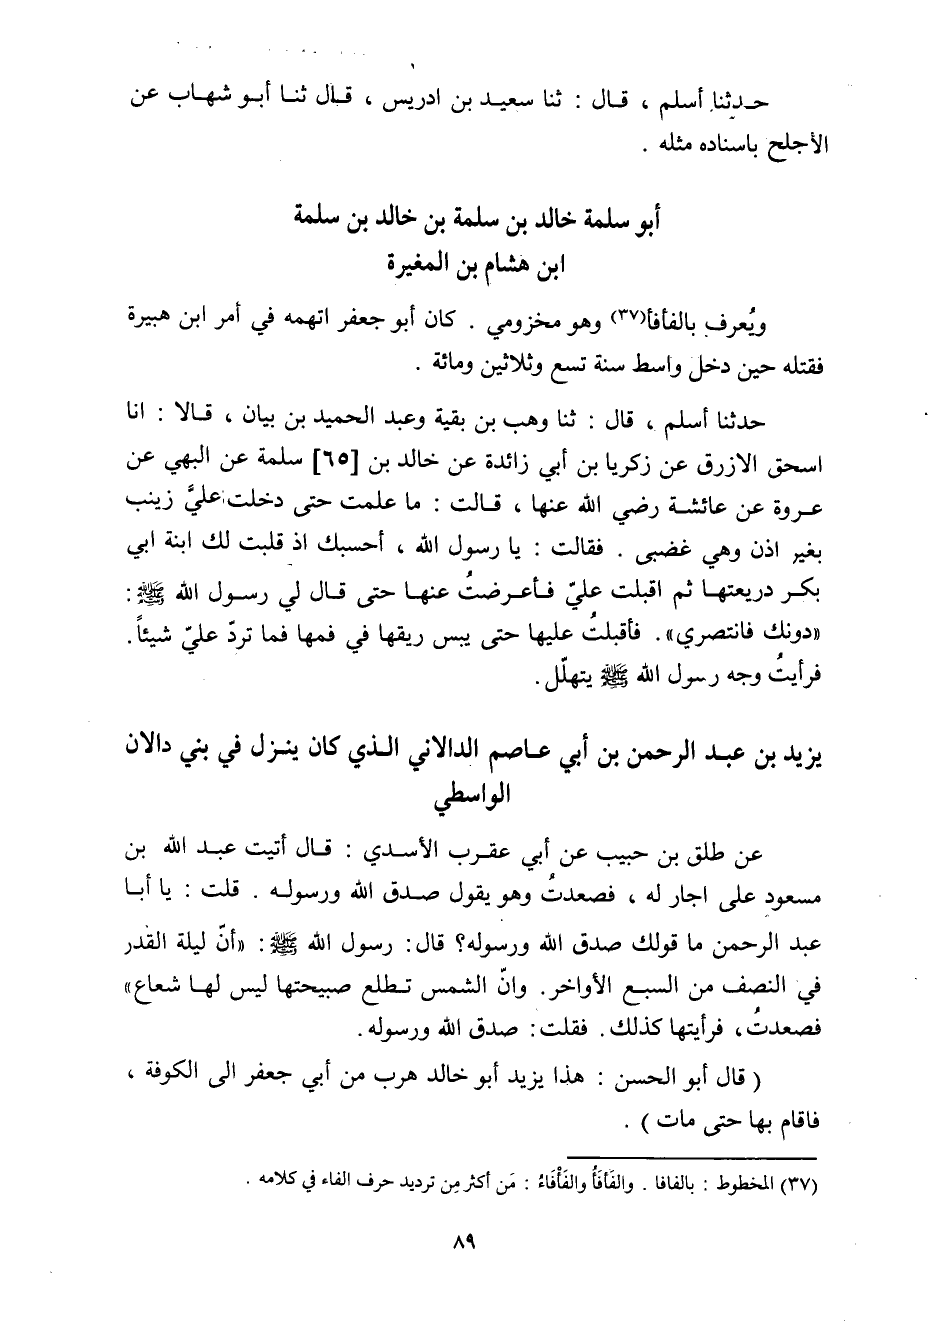 حدثنا أسلم ، قال : ثنا سعيد بن ادريس ، قال ثنا أبو شهاب عن
الأجلح باسناده مثله .
أبو سلمة خالد بن سلمة بن خالد بن سلمة
ابن هشام بن المغيرة
ويُعرف بالفأفأ(٣٧) وهو مخزومي . كان أبو جعفر اتهمه في أمر ابن هبيرة
فقتله حين دخل واسط سنة تسع وثلاثين ومائة .
حدثنا أسلم ، قال : ثنا وهب بن بقية وعبد الحميد بن بيان ، قالا : انا
اسحق الازرق عن زكريا بن أبي زائدة عن خالد بن [٦٥] سلمة عن البهي عن
عروة عن عائشة رضي الله عنها ، قالت : ما علمت حتى دخلت عليَّ زينب
بغير اذن وهي غضبى . فقالت : يا رسول الله ، أحسبك اذ قلبت لك ابنة ابي
بكر دريعتها ثم اقبلت عليّ فأعرضتُ عنها حتى قال لي رسول الله ﷺ :
«دونك فانتصري». فأقبلتُ عليها حتى يبس ريقها في فمها فما تردّ عليّ شيئاً.
فرأيتُ وجه رسول الله ﷺ يتهلّل.
يزيد بن عبد الرحمن بن أبي عاصم الدالاني الذي كان ينزل في بني دالان
الواسطي
عن طلق بن حبيب عن أبي عقرب الأسدي : قال أتيت عبد الله بن
مسعود على اجار له ، فصعدتُ وهو يقول صدق الله ورسوله . قلت : يا أبا
عبد الرحمن ما قولك صدق الله ورسوله؟ قال: رسول الله ﷺ : «أنّ ليلة القدر
في النصف من السبع الأواخر. وانّ الشمس تطلع صبيحتها ليس لها شعاع»
فصعدتُ، فرأيتها كذلك. فقلت: صدق الله ورسوله.
( قال أبو الحسن : هذا يزيد أبو خالد هرب من أبي جعفر الى الكوفة ،
فاقام بها حتى مات ) .
(٣٧) المخطوط : بالفافا . والفَأفَأُ والفَأْفَاءُ : مَن أكثر مِن ترديد حرف الفاء في كلامه .
٨٩